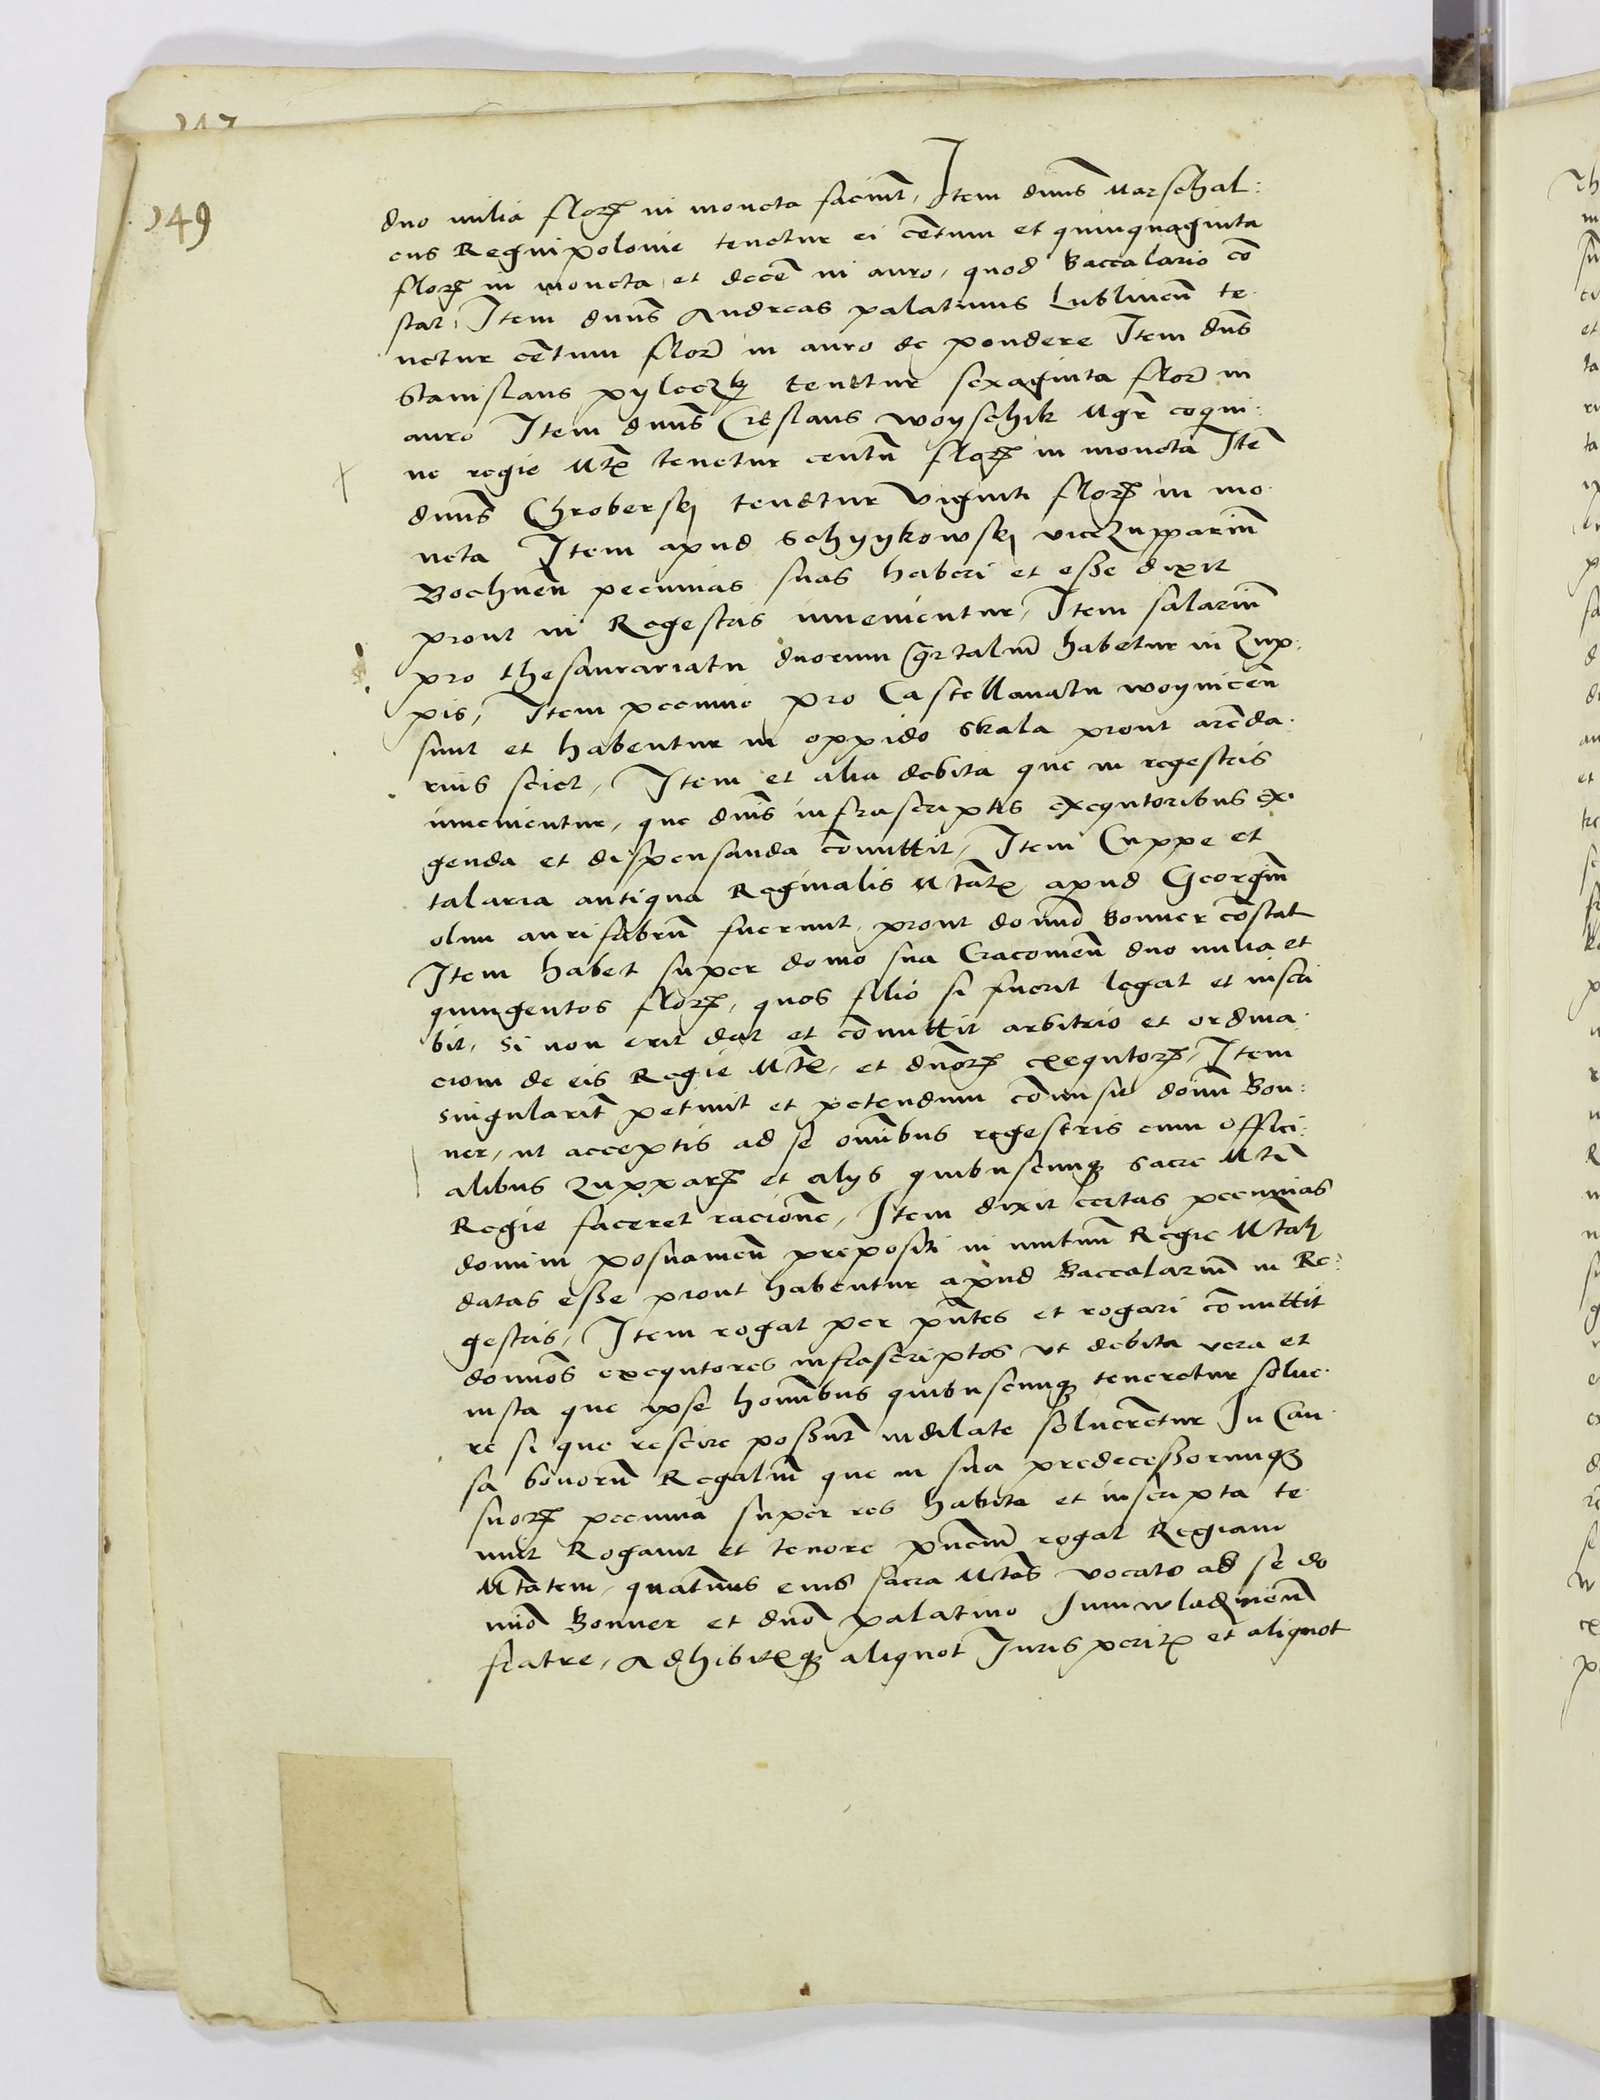 149
duo milia florꝝ in moneta faciūt, Item dnūs Marschal:
cus Regni polonie tenetur ei cētum et quinquaginta
florꝝ in moneta, et decē in auro, quod Baccalario cō
stat, Item dnūs Andreas palatinus Lublinēn te
netur cētum flor̄ in auro de pondere Item dn̄s
Stanislaus tenetur sexaginta flor̄ in
auro Item dnūs Creslaus woyschik Mgr̄ coqui:
ne regie Mtꝭ tenetur centū florꝝ in moneta Itē
dnūs Chrobersky tenetur viginti florꝝ in mo
neta Item apud vicezuppariū
Bochnēn pecunias suas haberi et esse dixit
prout in Regestris inuenientur, Item salariū
pro thesaurariatu duorum qrtaliū habetur in Zup:
pis, Item pecunie pro Castellanatu woynicēn
sunt et habentur in oppido Skala prout arēda:
rius sciet, Item et alia debita que in regestris
inuenientur, que dn̄is infrascriptis exequtoribus ex
genda et dispensanda cōmittit, Item Cuppe et
talaria antiqua Reginalis Mtātꝭ apud Georgiū
olim aurifabrū fuerunt, prout domīo Bonner cōstat
Item habet super domo sua Cracouiēn duo milia et
quingentos florꝝ, quos filio si fuerit legat et inscri
bit, si non erit dat et cōmittit arbitrio et ordina
cioni de eis Regie Mtꝭ, et dnōrꝝ exequtorꝝ, Item
singularit̄ petiuit et petendum cōmisit domī Bon:
ner, ut acceptis ad se omībus regestris cum offici:
alibus zupparꝝ et alys quibuscunqꝫ sacre Mti
Regie faceret racionē, Item dixit certas pecunias
domini posnaniēn prepositi in mutuū Regie Mtati
datas esse prout habentur apud Baccalariū in Re:
gestris, Item rogat per pn̄tes et rogari cōmittit
domīos exequtores infrascriptos ut debita vera et
iusta que ipse homībus quibuscunqꝫ teneretur solue
re si que rescire possūt indilate soluerētur In Cau
sa bonorū Regaliū que in sua predecessorumqꝫ
suorꝝ pecunia super res habita et inscripta te
nuit Rogauit et tenore pn̄ciū rogat Regiam
Mtātem, quatinus eius sacra Mtās vocato ad se do
mīo Bonner et dnō palatino Juniwladislauiēn
fratre, Adhibitꝭqꝫ aliquot Juris peritꝭ et aliquot